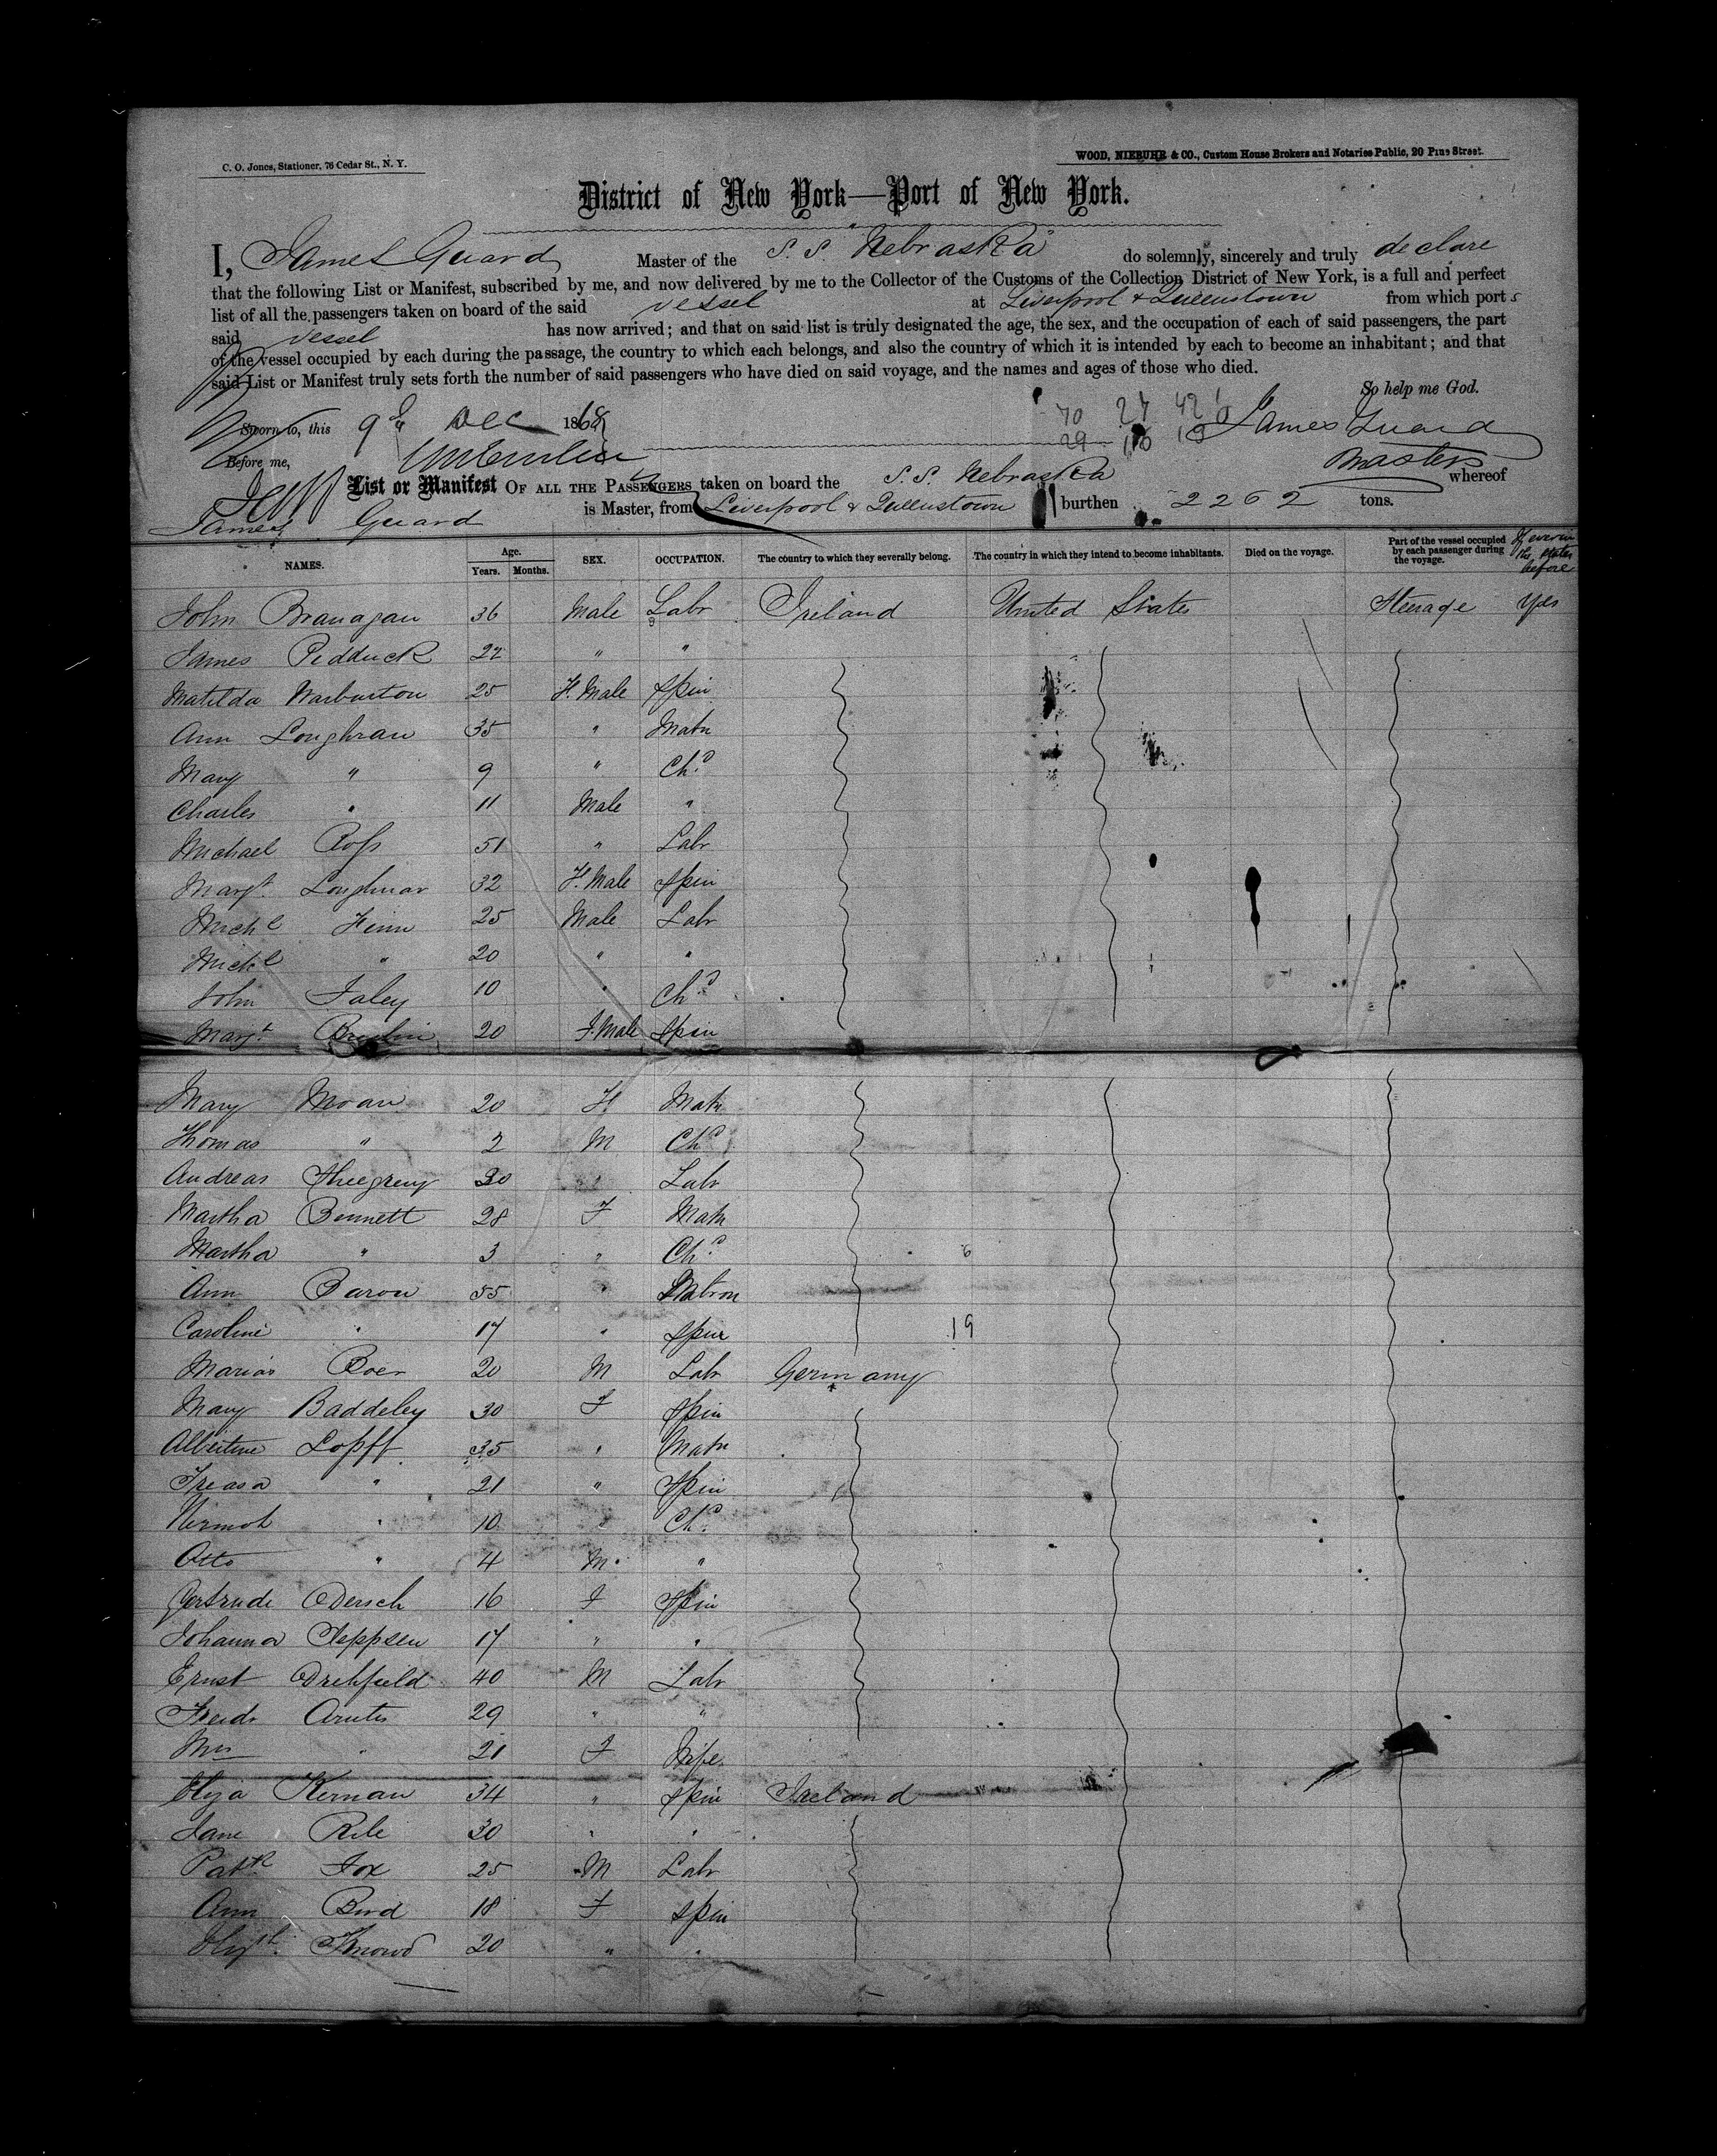 C. O. Jones, Stationer, 76 Cedar St., N. Y.
WOOD, NIEBUHR & CO., Custom House Brokers and Notaries Public, 20 Pine Street.
District of New York—Port of New York.
I, James Guard Master of the S. S. "Nebraska" do solemnly, sincerely and truly declare
that the following List or Manifest, subscribed by me, and now delivered by me to the Collector of the Customs of the Collection District of New York, is a full and perfect
list of all the passengers taken on board of the said vessel at Liverpool & Queenstown from which ports
said vessel has now arrived; and that on said list is truly designated the age, the sex, and the occupation of each of said passengers, the part
of the vessel occupied by each during the passage, the country to which each belongs, and also the country of which it is intended by each to become an inhabitant; and that
said List or Manifest truly sets forth the number of said passengers who have died on said voyage, and the names and ages of those who died.
So help me God.
Sworn to, this 9th Dec 1868 James Guard
Before me,
Master
List or Manifest OF ALL THE PASSENGERS taken on board the S. S. Nebraska whereof
James Guard is Master, from Liverpool & Queenstown burthen 2262 tons.
NAMES. Age. Years. Months. SEX. OCCUPATION. The country to which they severally belong. The country in which they intend to become inhabitants. Died on the voyage. Part of the vessel occupied by each passenger during the voyage. If ever in the States before
John Branagan 36 Male Labr Ireland United States Steerage Yes
James Pedduck 22 " "
Matilda Warburton 25 F. Male Spin
Ann Loughran 35 " Matn
Mary " 9 " Chd
Charles " 11 Male "
Michael Ross 51 " Labr
Margt. Loughnar 32 F. Male Spin
Michl Finn 25 Male Labr
Michl " 20 " "
John Faley 10 " Chd
Margt. 20 F. Male Spin
Mary Moan 20 F Matn
Thomas " 2 M Chd
Andreas 30 " Labr
Martha Bennett 28 F Matn
Martha " 3 " Chd
Ann Baron 55 " Matron
Caroline " 17 " Spin 19
Marias Boer 20 M Labr Germany
Mary Baddeley 30 F Spin
Albertine Lopff 35 " Matn
Treasa " 21 " Spin
" 10 " Chd
Otto " 4 M "
Gertrude Odersch 16 F Spin
Johanna Cleppsen 17 " "
Ernst Drehfield 40 M Labr
Freidr Arntes 29 " "
Mrs " 21 F Wife
Eliza Kernan 34 " Spin Ireland
Jane Rile 30 " "
Patk Fox 25 M Labr
Ann Bird 18 F Spin
20 " "